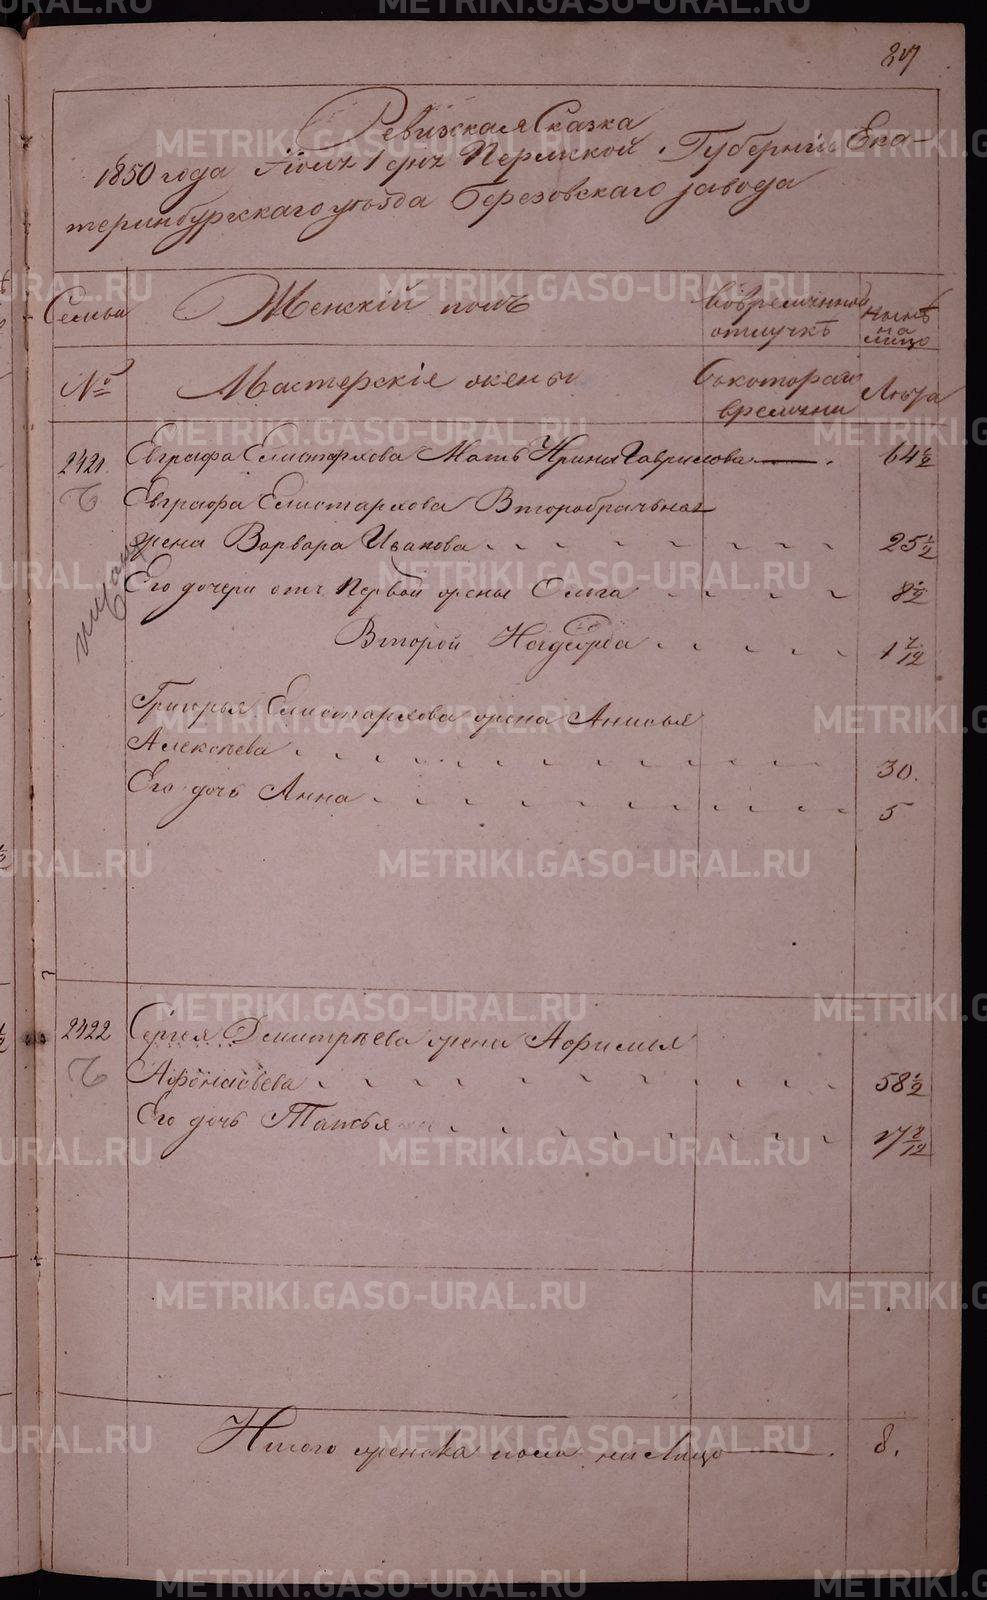 27
Ревизская Сказка
1850 года Июля 1 дня Пермской Губерніи Ека-
теринбургскаго уѣзда Березовскаго завода
Семьи
Женскій полъ
Во временной отлучкѣ
нынѣ на лицо
№
Мастерскіе жены
Съ котораго времени
Лѣта
2421. Евграфа Елистархова Мать Ирина Гаврилова 64 1/2
Евграфа Елистархова Второбрачьная
жена Варвара Иванова 25 1/2
Его дочери отъ Первой жены Ольга 8 1/2
Второй Надежда 1 7/12
Григорья Елистархова жена Анисья
Алексѣева 30.
Его дочь Анна 5
2422 Сергея Дмитрѣева жена Афимья
Афонасьева 58 1/2
Его дочь Татья 17 8/12
Итого женска пола на Лицо 8.
METRIKI.GASO-URAL.RU